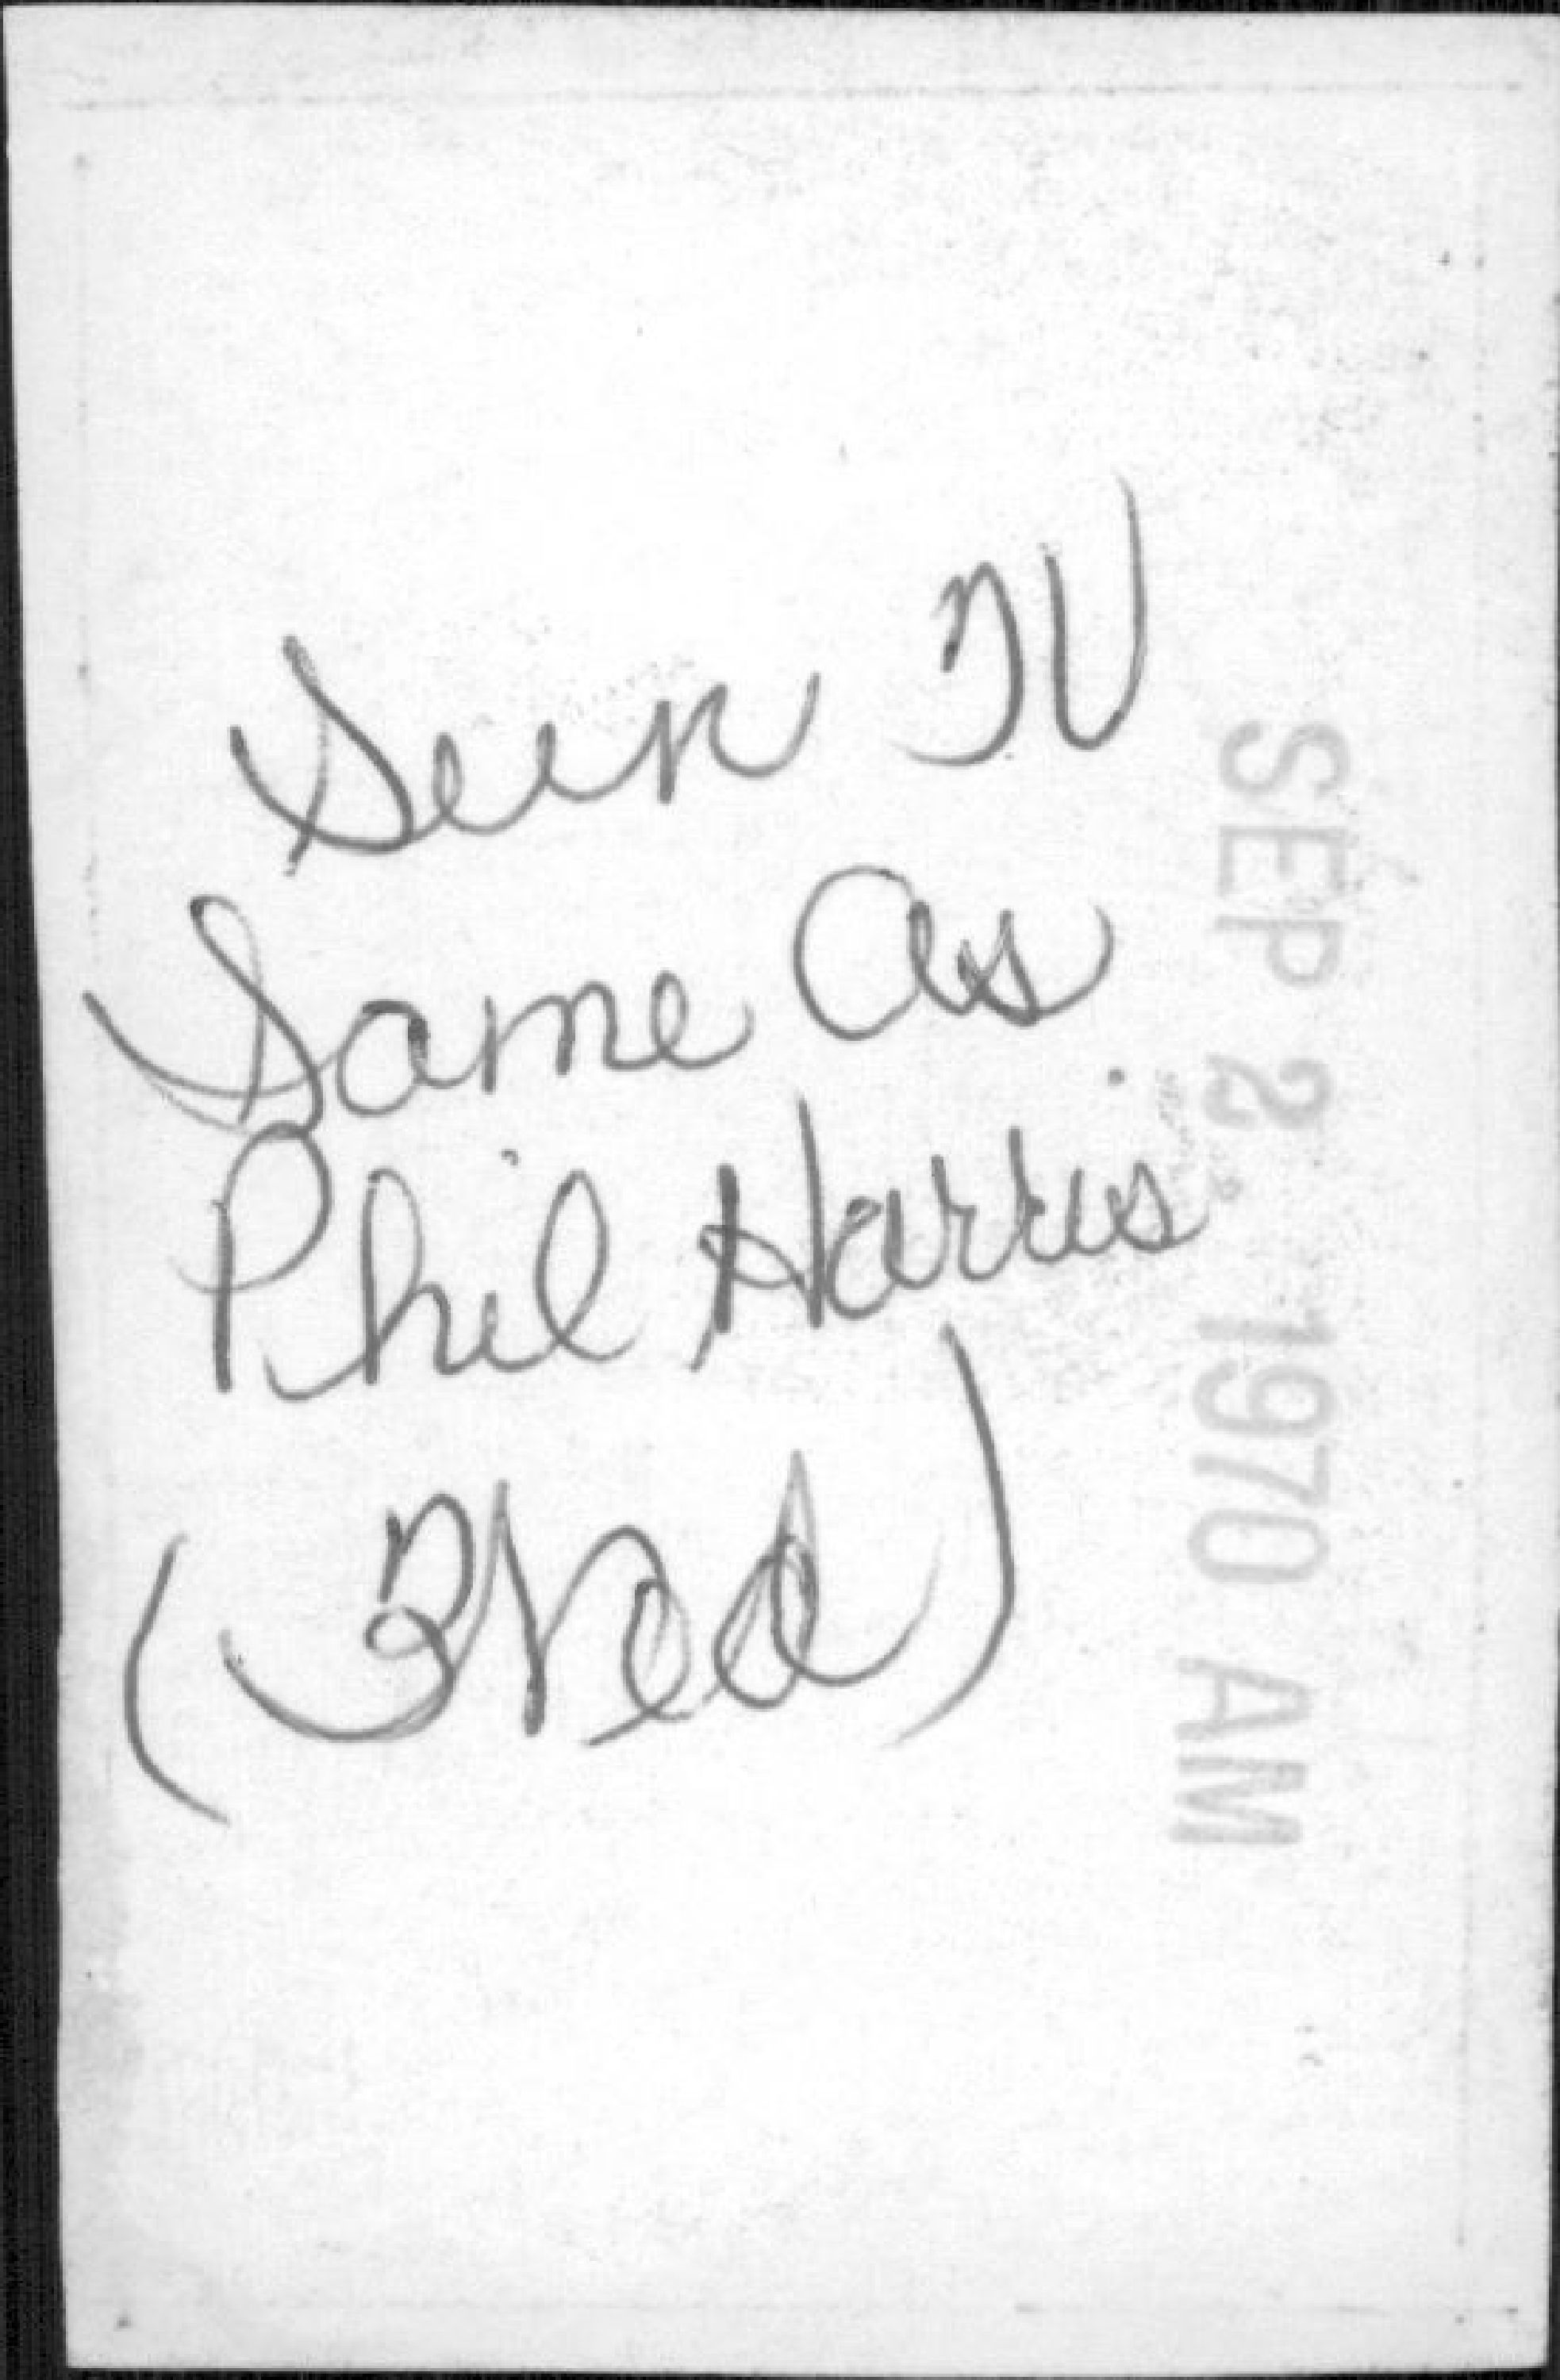 Seen TV
Same As
Phil Harris
(Fred)
SEP 2 1970 AM